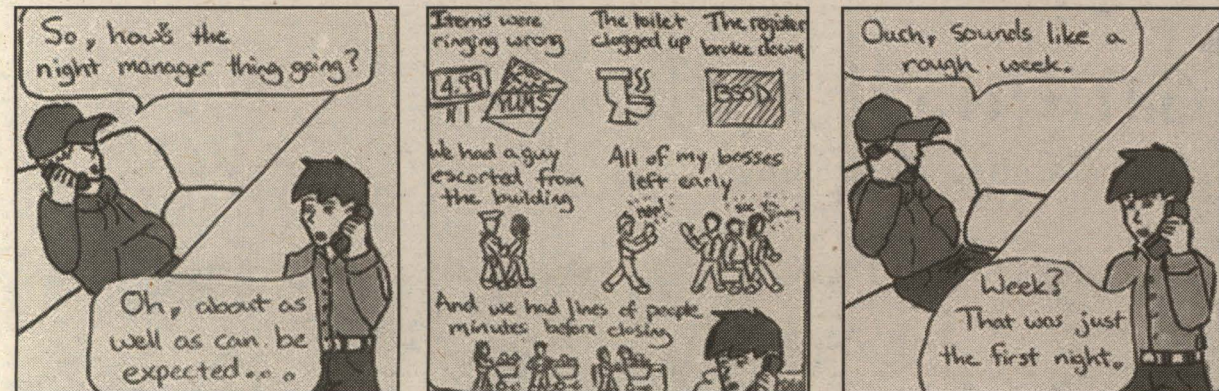 So, how's the
night manager thing going?
Oh, about as
well as can be
expected...
Items were
ringing wrong
4.99
YUMS
The toilet
clogged up
The register
broke down
BSOD
We had a guy
escorted from
the building
All of my bosses
left early
And we had lines of people
minutes before closing
Ouch, sounds like a
rough week.
Week?
That was just
the first night.